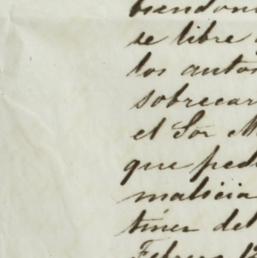 se libre
los autos
sobrecar
el Sor M
que ped
malicia
tiner del
Febrero